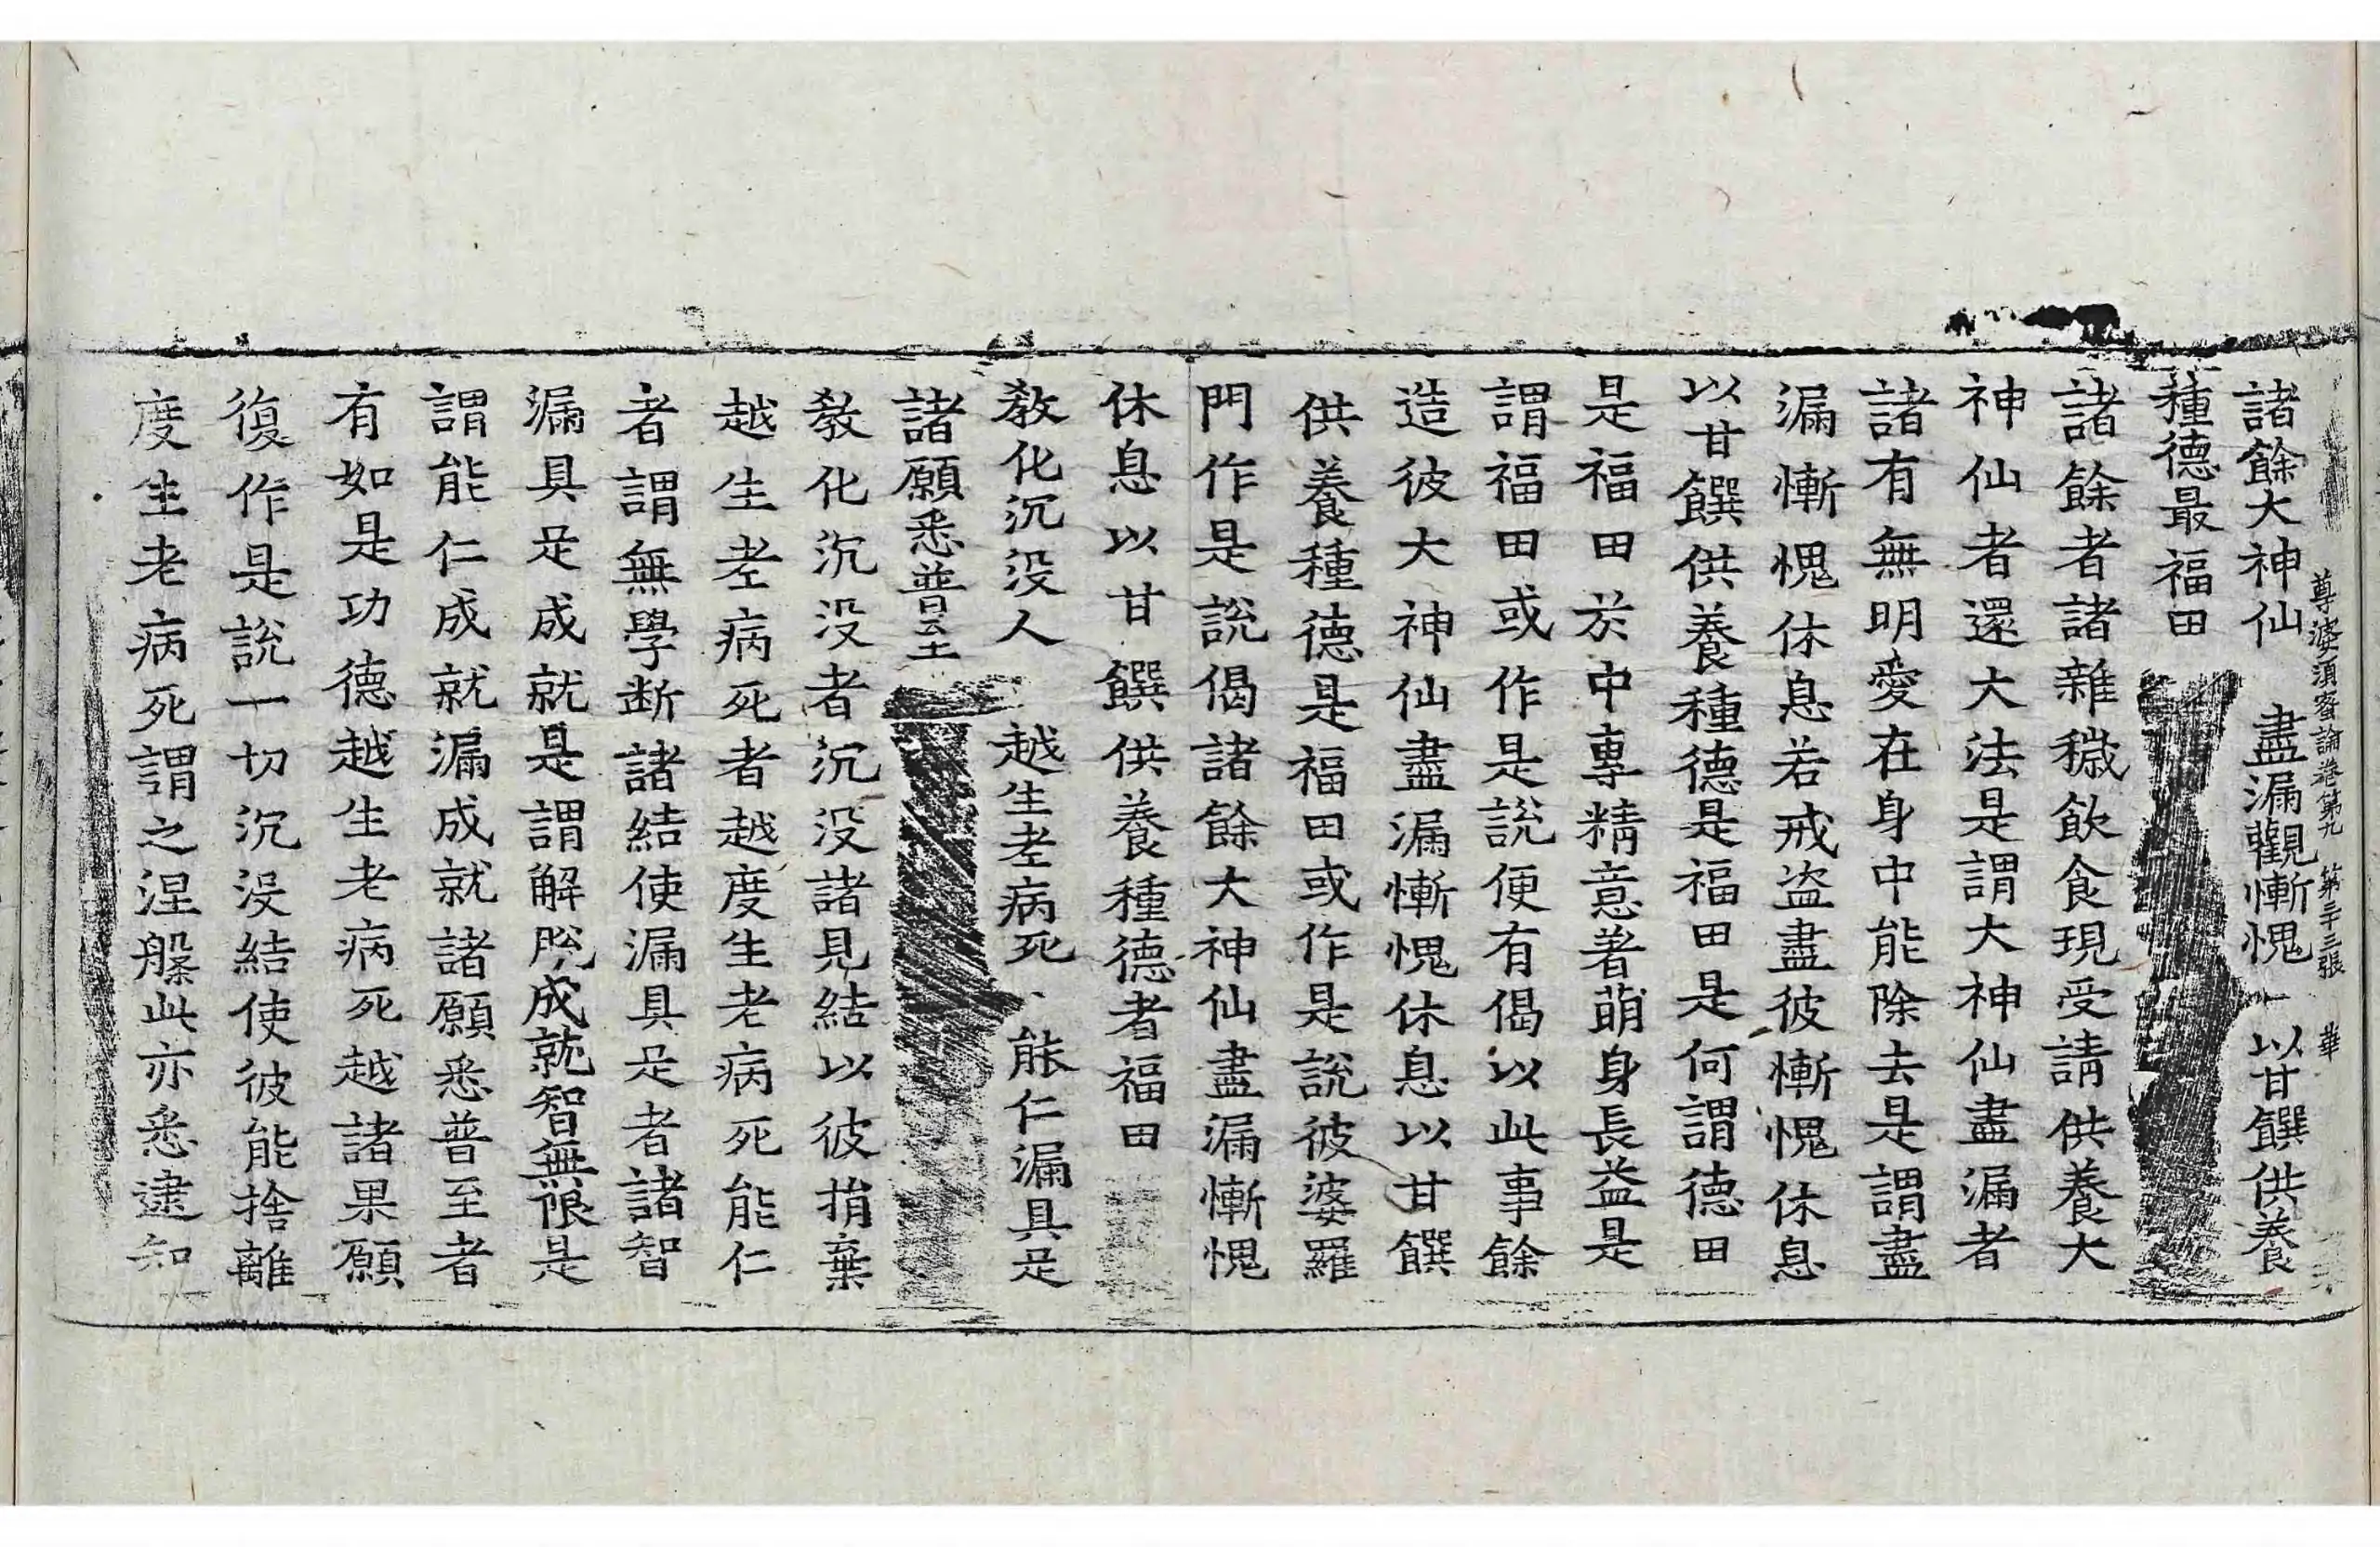 尊婆須蜜論卷第九 第三十三張 華
諸餘大神仙 盡漏觀慚愧 以甘饌供養
種德最福田
諸餘者諸雜穢飲食現受請供養大
神仙者還大法是謂大神仙盡漏者
諸有無明愛在身中能除去是謂盡
漏慚愧休息若戒盗盡彼慚愧休息
以甘饌供養種德是福田是何謂德田
是福田於中專精意著萌身長益是
謂福田或作是說便有偈以此事餘
造彼大神仙盡漏慚愧休息以甘饌
供養種德是福田或作是說彼婆羅
門作是說偈諸餘大神仙盡漏慚愧
休息以甘饌供養種德者福田
教化沉没人 越生老病死 能仁漏具足
諸願悉普至
教化沉没者沉没諸見結以彼捐棄
越生老病死者越度生老病死能仁
者謂無學断諸結使漏具足者諸智
漏具足成就是謂解脫成就智無限是
謂能仁成就漏成就諸願悉普至者
有如是功德越生老病死越諸果願
復作是說一切沉没結使彼能捨離
度生老病死謂之涅槃此亦悉逮知